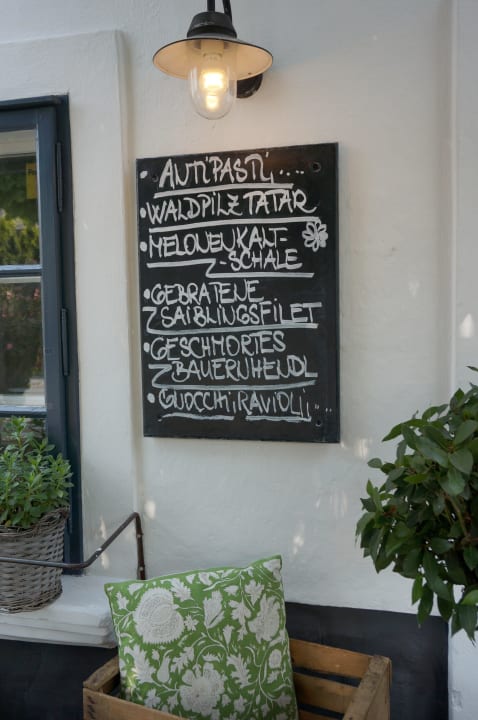 • ANTIPASTI,....
• WALDPILZ TATAR
• MELONENKALT-
-SCHALE
• GEBRATENE
SAIBLINGSFILET
• GESCHMORTES
BAUERNHENDL
• GNOCCHI, RAVIOLI,...